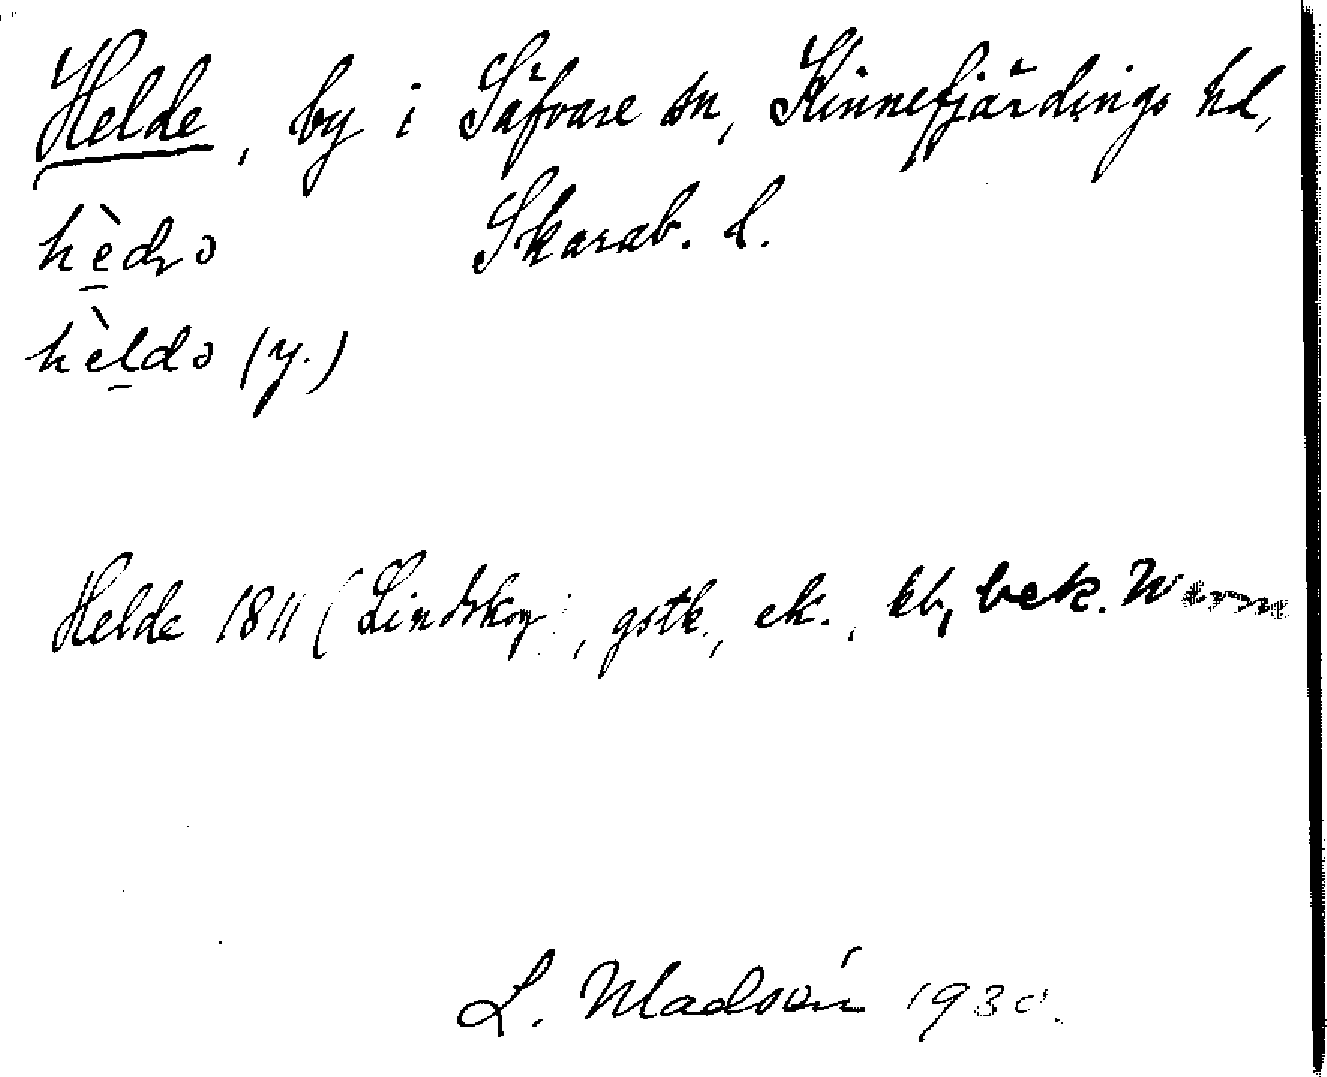 Helde, by i Säfvare sn, Kinnefjärdings hd,
Skarab. l.
hèldə (y.)
Helde 1811 (Lindskog), gstk., ek., kb, bek. Werm
L. Madsén 1930.